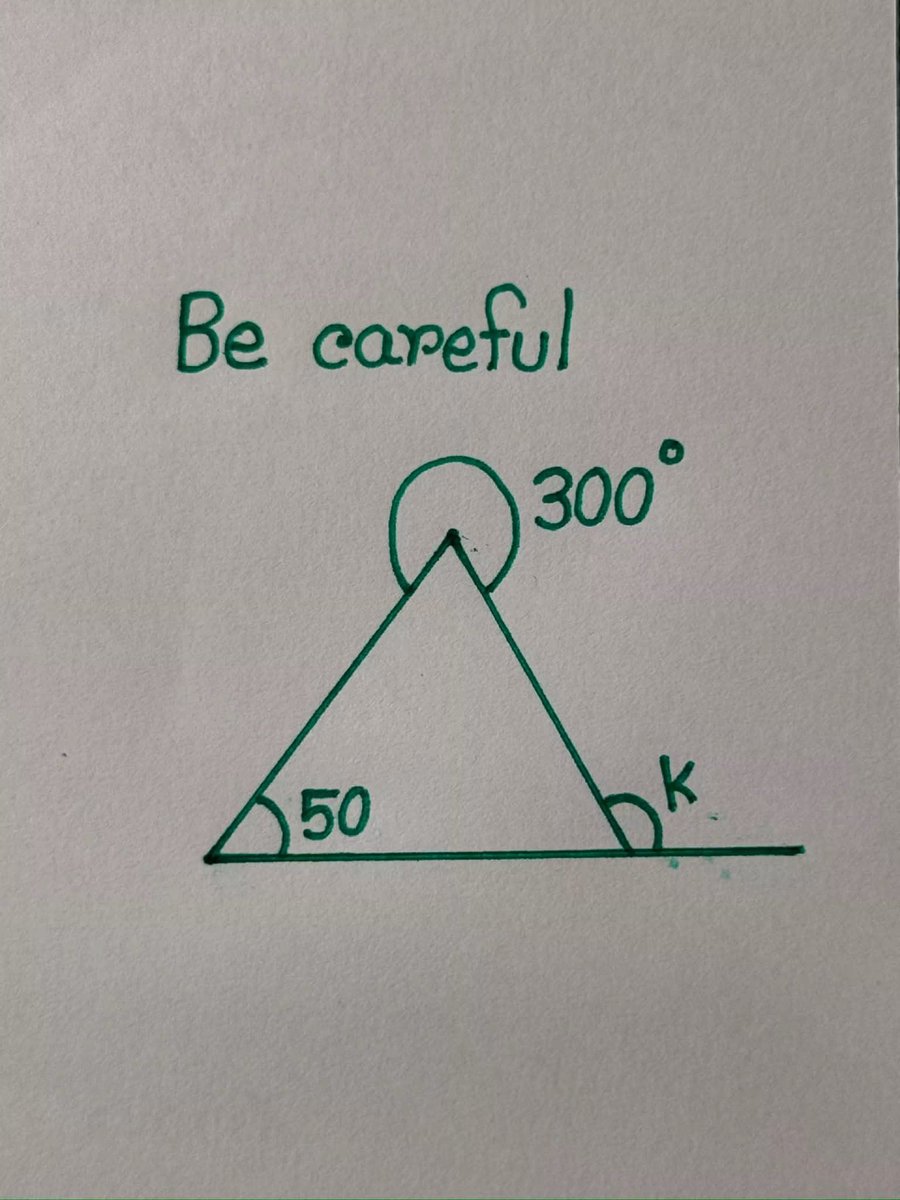 Be careful
300°
50
k